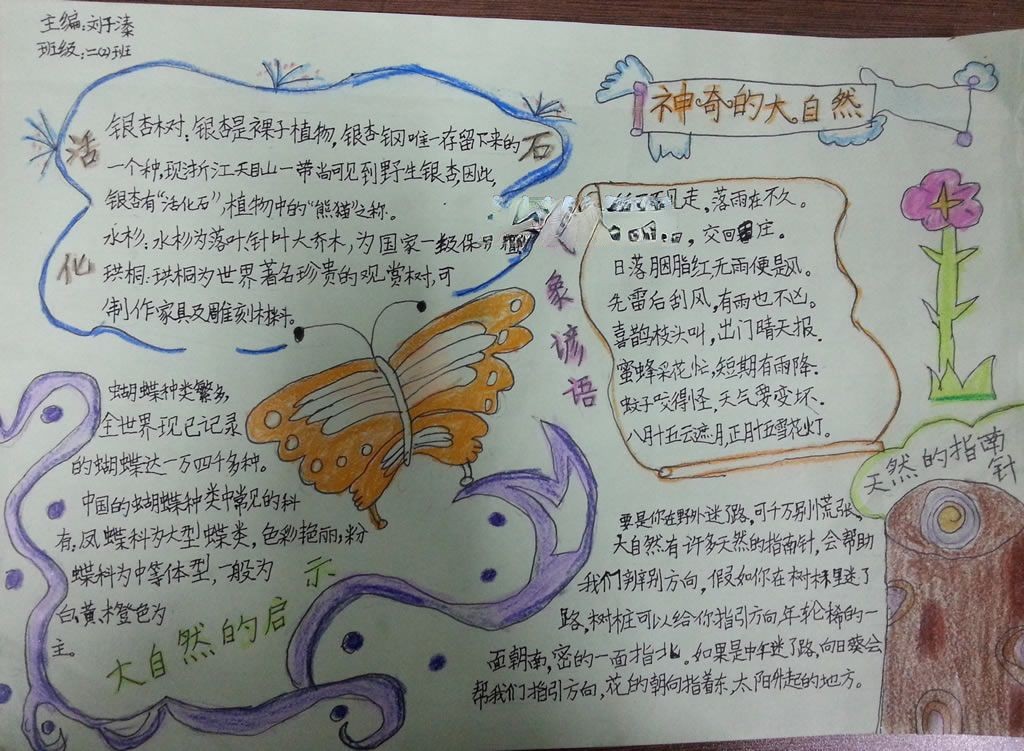 主编:刘子溱
班级:二(2)班
神奇的大自然
活化石
银杏树:银杏是裸子植物,银杏钢唯一存留下来的
一个种,现浙江天目山一带尚可见到野生银杏,因此,
银杏有“活化石”,植物中的“熊猫”之称。
水杉:水杉为落叶针叶大乔木,为国家一级保
珙桐:珙桐为世界著名珍贵的观赏树,可
制作家具及雕刻材料。
象谚语
风走,落雨在不久。
,交回庄。
日落胭脂红,无雨便是风。
先雷后刮风,有雨也不凶。
喜鹊枝头叫,出门晴天报.
蜜蜂采花忙,短期有雨降.
蚊子咬得怪,天气要变坏.
八月十五云遮月,正月十五雪花灯。
蝴蝶种类繁多,
全世界现已记录
的蝴蝶达一万四千多种。
中国的蝴蝶种类中常见的科
有:凤蝶科为大型蝶类,色彩艳丽;粉
蝶科为中等体型,一般为
白、黄、橙色为
主。
大自然的启示
天然的指南针
要是你在野外迷了路,可千万别慌张,
大自然有许多天然的指南针,会帮助
我们辨别方向,假如你在树林里迷了
路,树桩可以给你指引方向,年轮稀的一
面朝南,密的一面指北。如果是中午迷了路,向日葵会
帮我们指引方向,花的朝向指着东,太阳升起的地方。